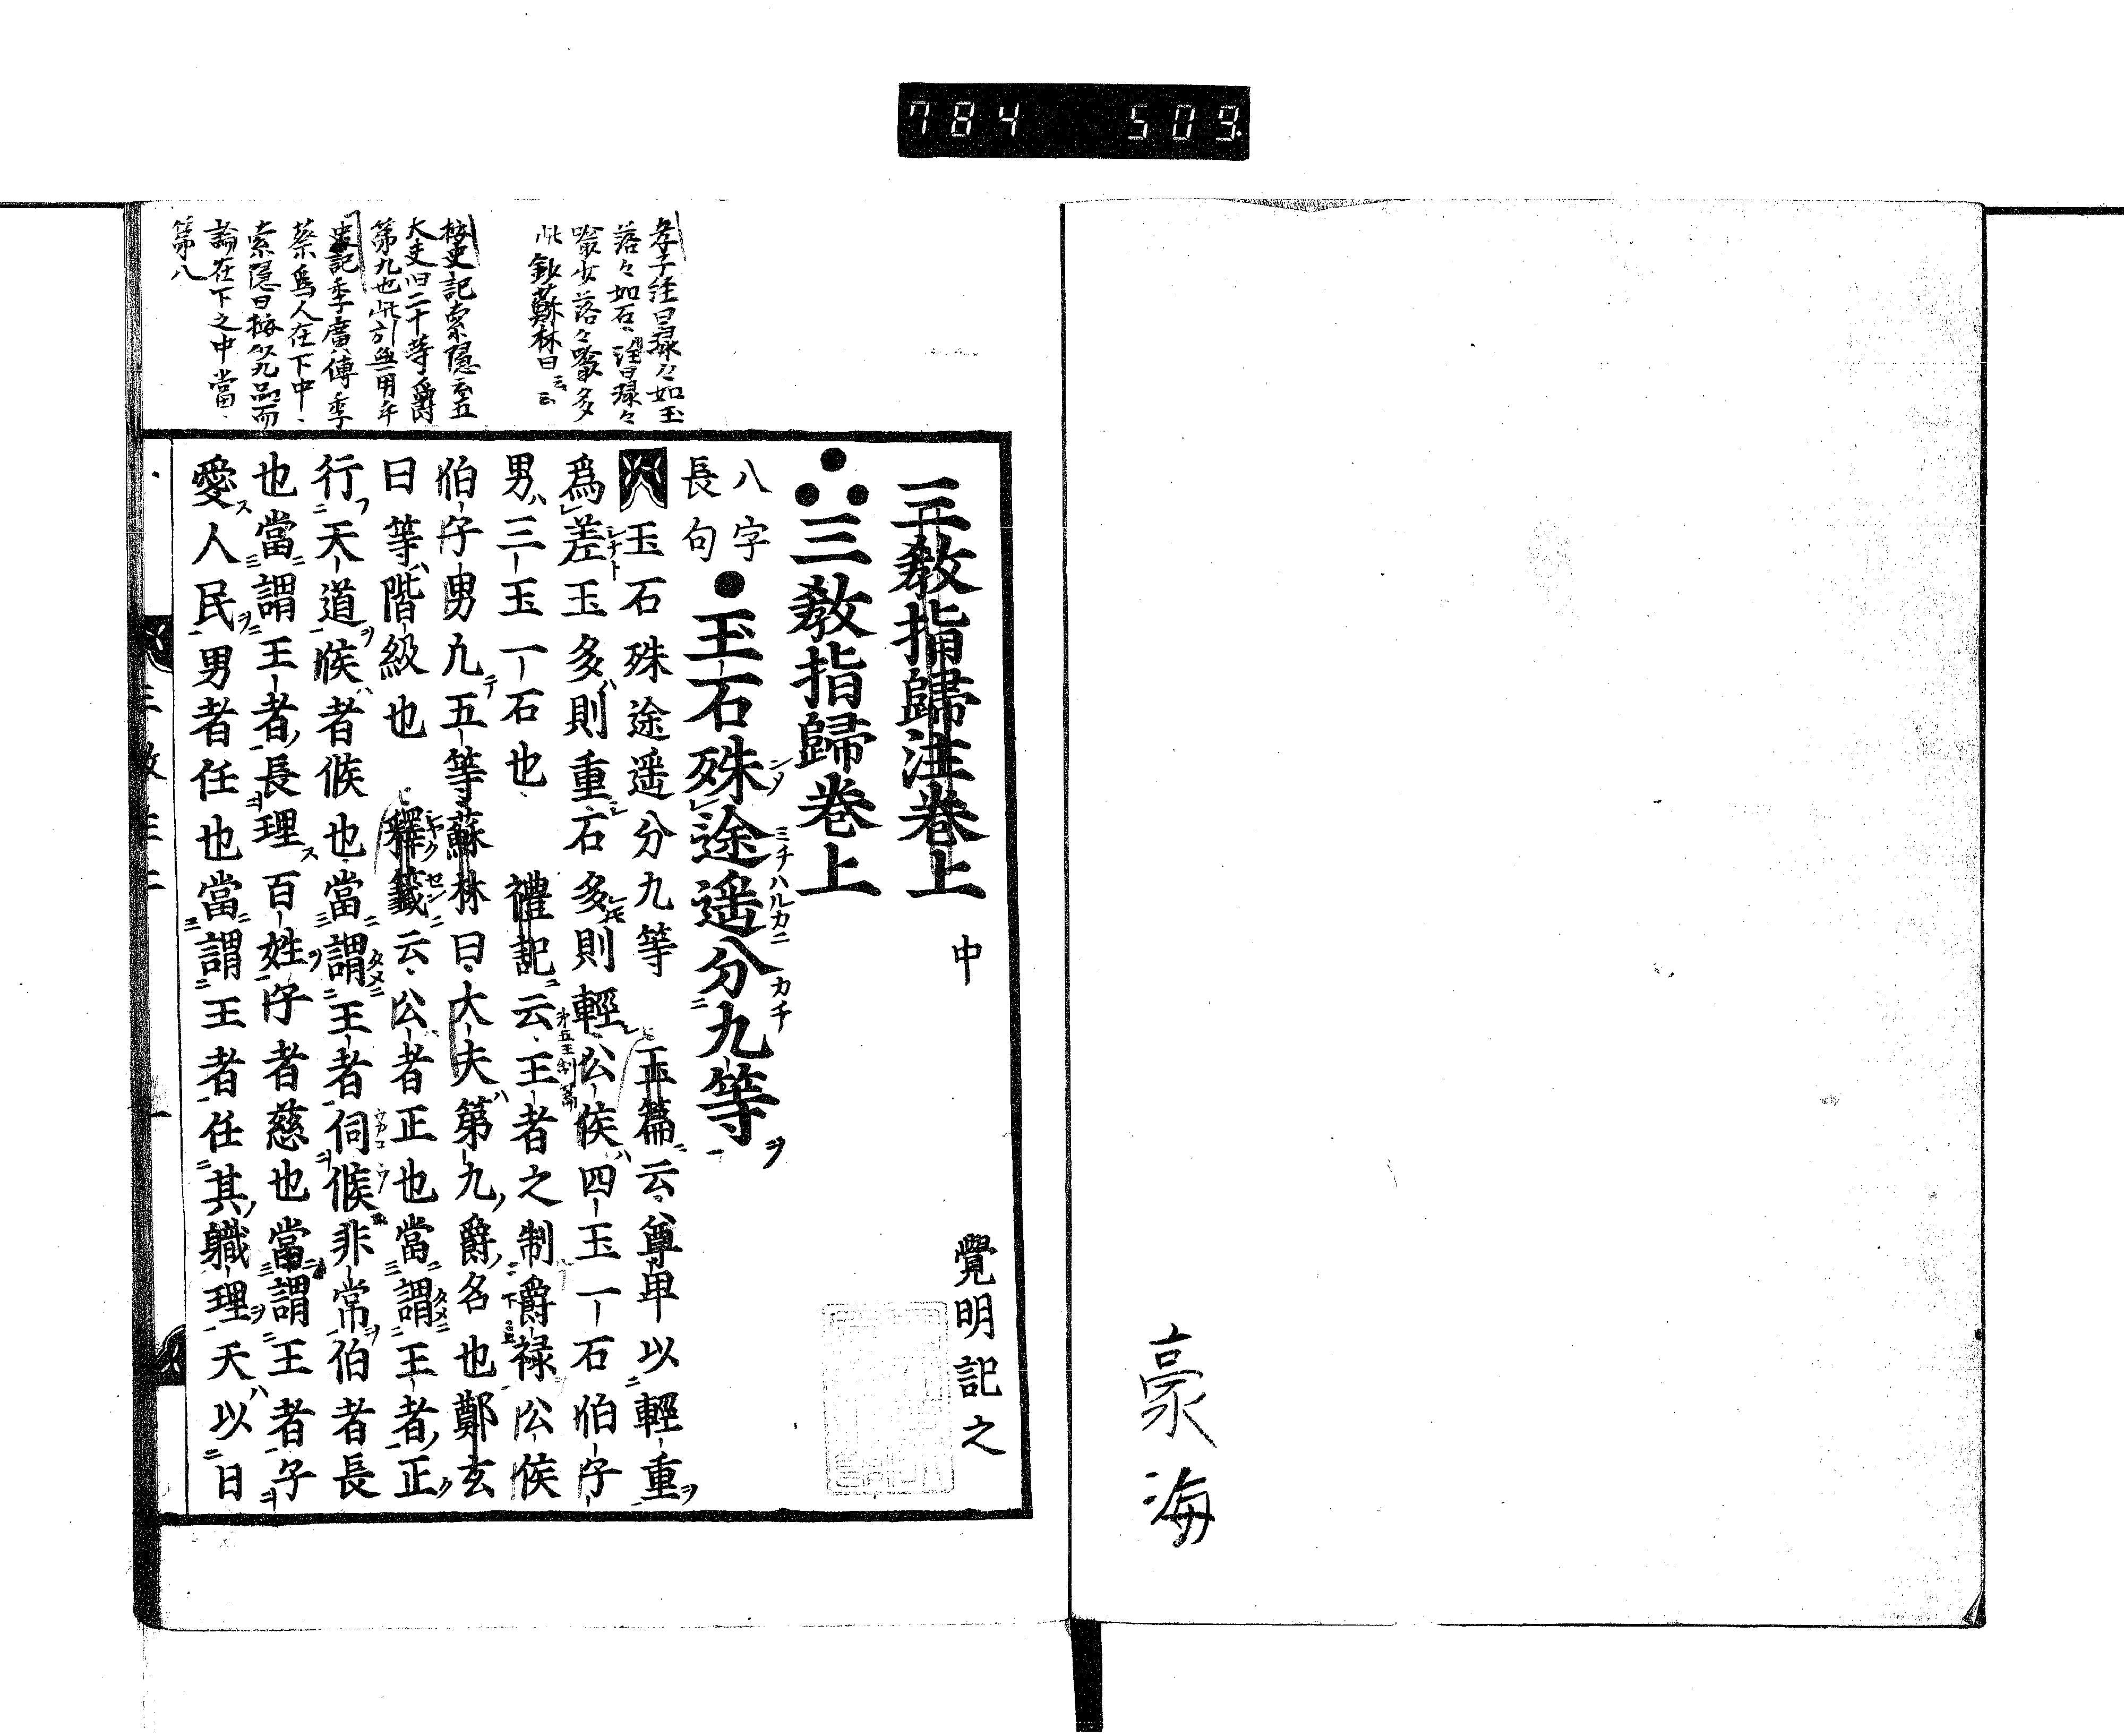 784 509
豪海
三教指歸注卷上 中 覺明記之
三教指歸卷上
八字
長句
玉石殊途遥分九等
玉石殊途遥分九等 玉篇云尊卑以輕重
爲差玉多則重石多則輕公侯四玉一石伯子
男三玉一石也 禮記云王者之制爵禄公侯
伯子男九五等蘇林曰大夫第九爵名也鄭玄
曰等階級也 釋籤云公者正也當謂王者正
行天道侯者候也當謂王者伺候非常伯者長
也當謂王者長理百姓子者慈也當謂王者子
愛人民男者任也當謂王者任其職理天以日
第五王制篇
老子經曰琭々如玉
落々如石注曰琭々
喻少落々喻多
此釼蘇林曰云云
按史記索隱云五
大夫曰二十等爵
第九也此引無用乎
史記李廣傳李
蔡爲人在下中
索隱曰按以九品而
論在下之中當
第八